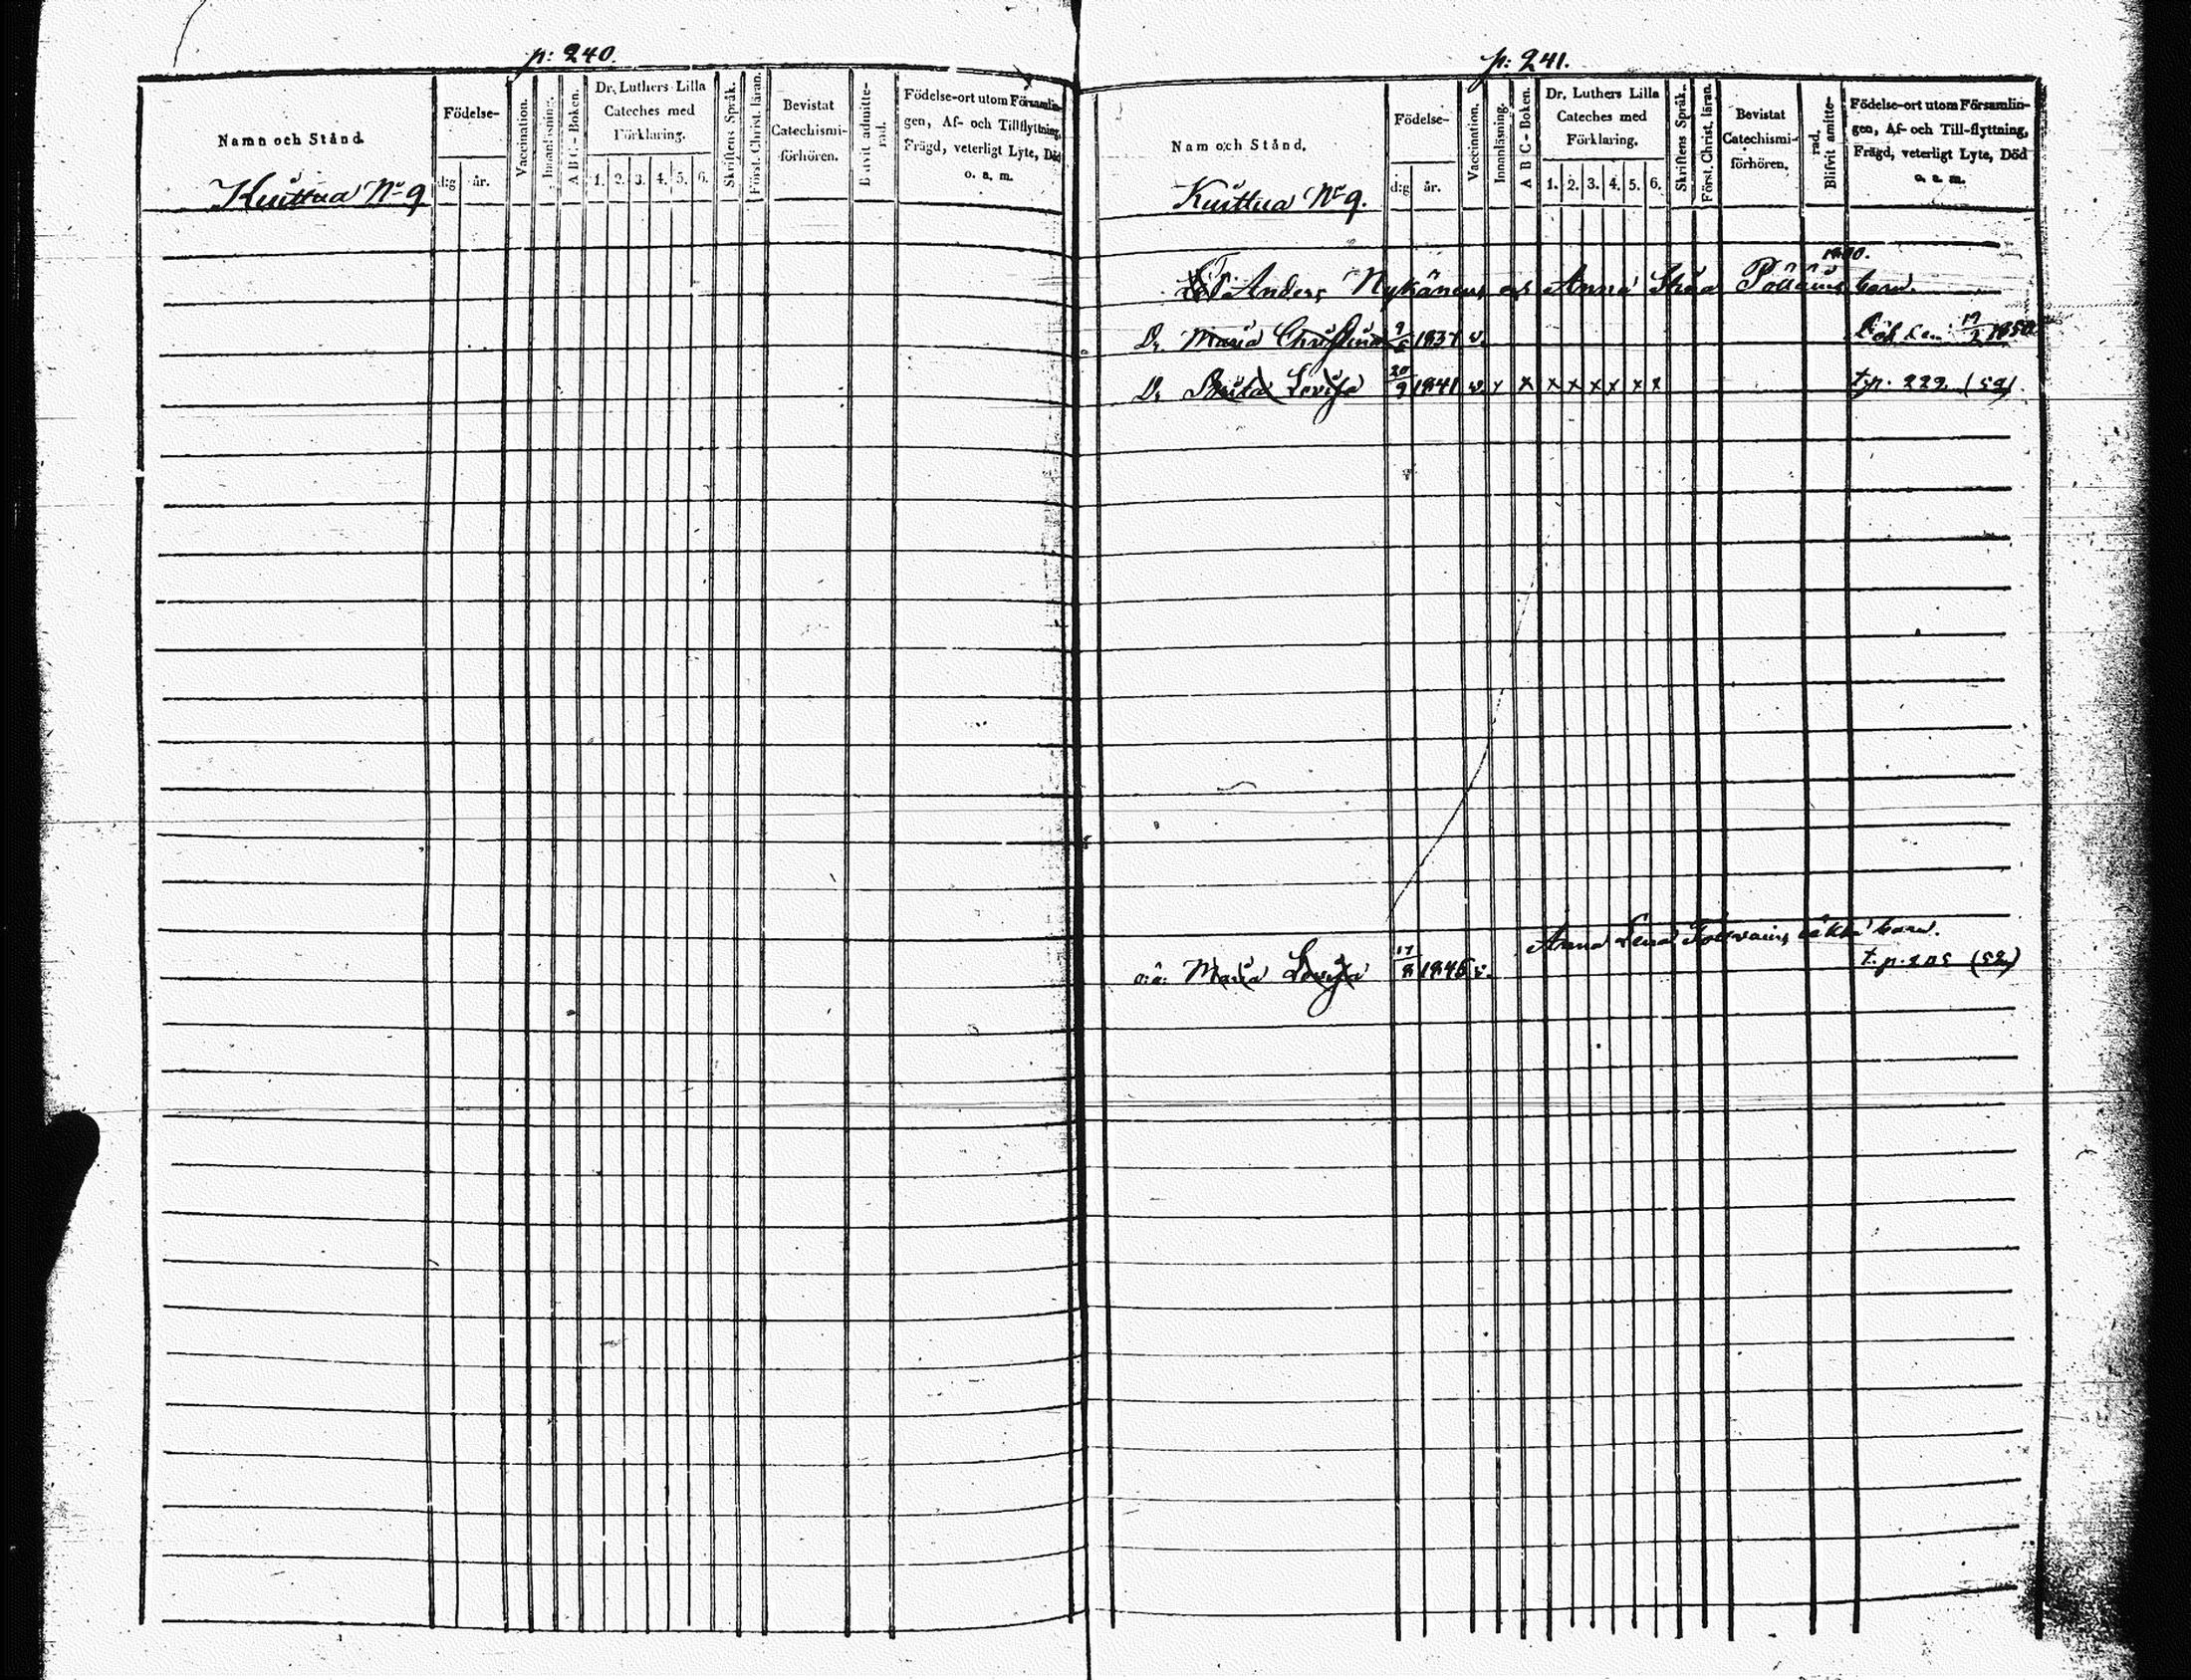 p: 240.
Namn och Stånd.
Födelse-
d:g
år.
Vaccination.
Innanläsning.
A B C - Boken.
Dr. Luthers Lilla
Cateches med
Förklaring.
1. 2. 3. 4. 5. 6.
Skriftens Språk.
Först. Christ. läran.
Bevistat
Catechismi-
förhören.
Blifvit admitte-
rad.
Födelse-ort utom Församlin-
gen, Af- och Tillflyttning,
Frägd, veterligt Lyte, Död
o. a. m.
Kuittua No 9
p: 241.
Nam och Stånd.
Födelse-
d:g
år.
Vaccination.
Innanläsning.
A B C - Boken.
Dr. Luthers Lilla
Cateches med
Förklaring.
1. 2. 3. 4. 5. 6.
Skriftens Språk.
Först. Christ. läran.
Bevistat
Catechismi-
förhören.
Blifvit amitte-
rad.
Födelse-ort utom Församlin-
gen, Af- och Till-flyttning,
Frägd, veterligt Lyte, Död
o. a. m.
Kuittua No 9.
Anders Nykänens Anna barn.
Dr. Maria Christina 1837 v. Död den 1850
Dr Brita Lovisa 20/9 1841 v. x x x x x x x x t.p. 222 (52)
Anna Lena oäkta barn.
o:ä: Maria Lovisa 17/8 1845 v. t.p. 205 (52)